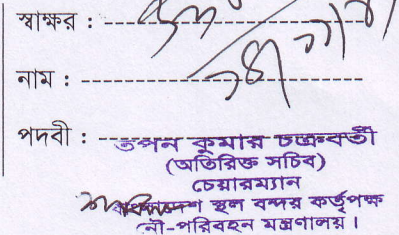 স্বাক্ষর :
নাম :
পদবী : তপন কুমার চক্রবর্তী
(অতিরিক্ত সচিব)
চেয়ারম্যান
বাংলাদেশ স্থল বন্দর কর্তৃপক্ষ
নৌ-পরিবহন মন্ত্রণালয়।